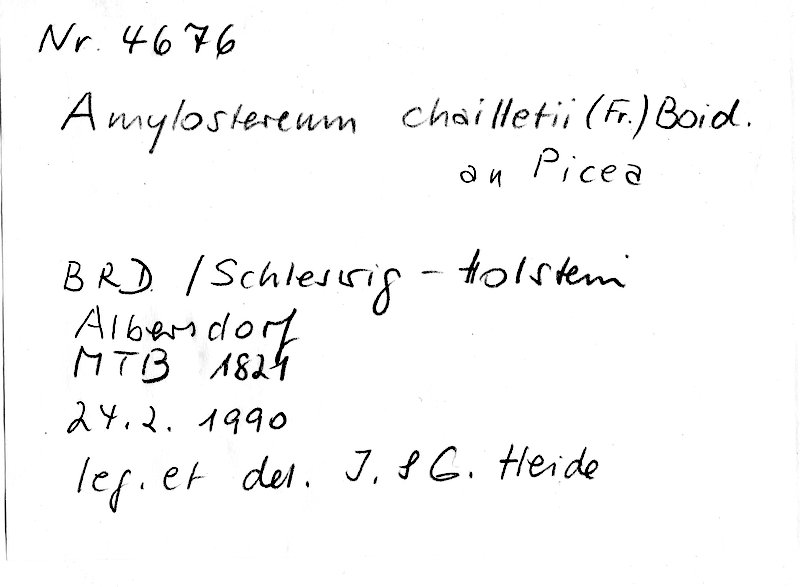 Nr. 4676
Amylostereum chailletii (Fr.) Boid.
an Picea
BRD / Schleswig - Holstein
Albersdorf
MTB 1821
24.2. 1990
leg. et det. J. & G. Heide